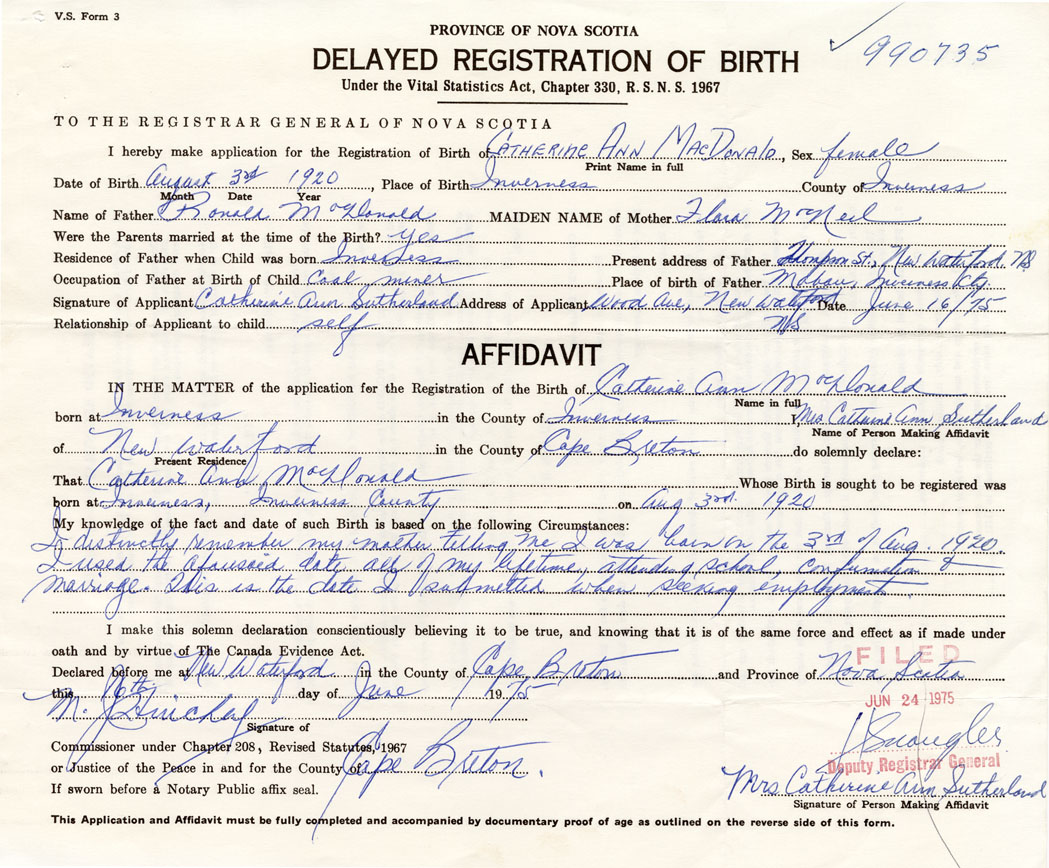 V.S. Form 3
PROVINCE OF NOVA SCOTIA
DELAYED REGISTRATION OF BIRTH
990735
Under the Vital Statistics Act, Chapter 330, R.S.N.S. 1967
TO THE REGISTRAR GENERAL OF NOVA SCOTIA
I hereby make application for the Registration of Birth of CATHERINE ANN MACDONALD, Sex female
Print Name in full
Date of Birth August 3rd 1920, Place of Birth Inverness County of Inverness
Month Date Year
Name of Father Ronald MacDonald MAIDEN NAME of Mother Flora McNeil
Were the Parents married at the time of the Birth? yes
Residence of Father when Child was born Inverness Present address of Father Thompson St., New Waterford, NS
Occupation of Father at Birth of Child Coal miner Place of birth of Father Mabou, Inverness Cty.
Signature of Applicant Catherine Ann Sutherland Address of Applicant Wood Ave, New Waterford Date June 16/75
Relationship of Applicant to child self NS
AFFIDAVIT
IN THE MATTER of the application for the Registration of the Birth of Catherine Ann MacDonald
Name in full
born at Inverness in the County of Inverness Mrs Catherine Ann Sutherland
Name of Person Making Affidavit
of New Waterford in the County of Cape Breton do solemnly declare:
Present Residence
That Catherine Ann MacDonald Whose Birth is sought to be registered was
born at Inverness, Inverness County on Aug 3rd. 1920
My knowledge of the fact and date of such Birth is based on the following Circumstances:
I distinctly remember my mother telling me I was born on the 3rd of Aug. 1920.
I used the afousaid date all of my lifetime, attending school, confirmation &
marriage. This is the date I submitted when seeking employment.
I make this solemn declaration conscientiously believing it to be true, and knowing that it is of the same force and effect as if made under
oath and by virtue of The Canada Evidence Act.
FILED
Declared before me at New Waterford in the County of Cape Breton and Province of Nova Scotia
this day of June 1975
JUN 24 1975
M. J. Hinchey
Signature of
Commissioner under Chapter 208, Revised Statutes, 1967
or Justice of the Peace in and for the County of Cape Breton.
Deputy Registrar General
If sworn before a Notary Public affix seal.
Mrs Catherine Ann Sutherland
Signature of Person Making Affidavit
This Application and Affidavit must be fully completed and accompanied by documentary proof of age as outlined on the reverse side of this form.